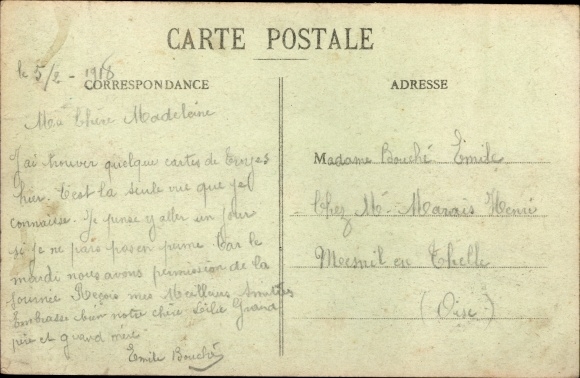 CARTE POSTALE
le 5/2 - 1918
CORRESPONDANCE
Ma Chère Madeleine
J'ai trouver quelque cartes de
hier. C'est la seule vue que je
connaisse. Je pense y aller un jour
si je ne pars pas en perme. Car le
mardi nous avons permission de la
journée Reçois mes Meilleurs Amitiés
Embrasse bien notre chère Lilie Grand
père et grand mère.
Emile Bouché
ADRESSE
Madame Bouché Emile
Chez Mr Marais Henri
Mesnil en Thelle
(Oise)